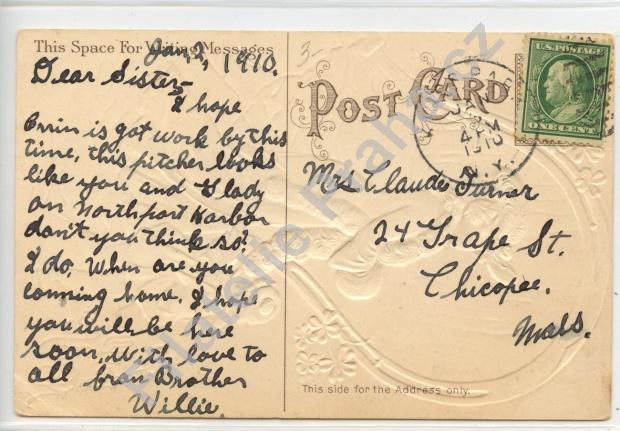 This Space For Writing Messages
Jan, 2, 1910.
Dear Sister,
I hope
Errin is got work by this
time, this pitcher looks
like you and Glady
on Northport Harbor
don't you think so?
I do, When are you
comming home. I hope
you will be here
soon, with love to
all from Brother
Willie.
3-
POST CARD
U.S. POSTAGE
ONE CENT
1910
N.Y.
Mrs Claude Turner
24 Grape St.
Chicopee.
Mass.
This side for the Address only.
Filatelie Praha cz